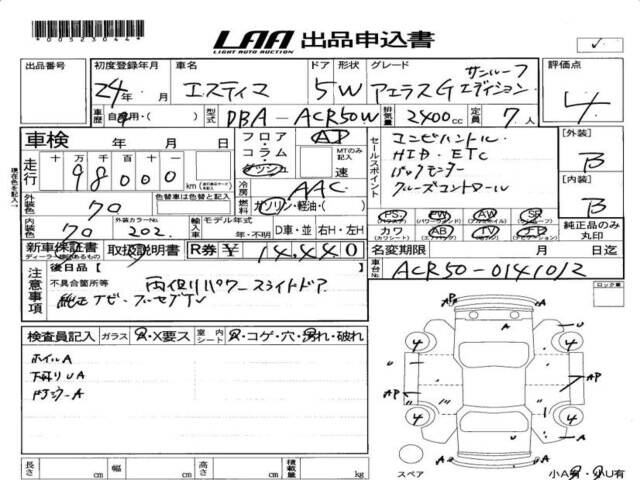 *00523044*
LAA 出品申込書
LIGHT AUTO AUCTION
出品番号 初度登録年月 車名 ドア 形状 グレード 評価点
24年 月 エスティマ 5W アエラスG サンルーフ エディション 4
車歴 自家用・( ) 型式 DBA-ACR50W 排気量 2400cc 定員 7人
車検 年 月 日 フロア・コラム・ AP 【外装】 B
走行 十 万 千 百 十 一 98000 km MTのみ記入 速
セールスポイント
HID・ETC
バックモニター
クルーズコントロール
【内装】 B
冷房 AAC
燃料 ガソリン・軽油・( )
外装色 70 色替車は色替と記入
内装色 70 外装カラーNo. 202 輸入車 モデル年式 年・不明 D車・並 右H・左H
PS PW AW SR
カワ AB TV
純正品のみ丸印
新車保証書 取扱説明書 R券 ¥ 14,440
名変期限 月 日迄
車台No. ACR50-0141012
注意事項 後日品( )
不具合箇所等 両側パワースライドドア
純正ナビ・フルセグTV
ロック車
検査員記入 ガラス A・X要ス 室内シート A・コゲ・穴・汚れ・破れ
ホイルA
下廻りUA
長さ cm 幅 cm 高さ cm 積載量 kg
A A U AP AP AP A U A
4 4 4 4
スペア
小A有・小U有